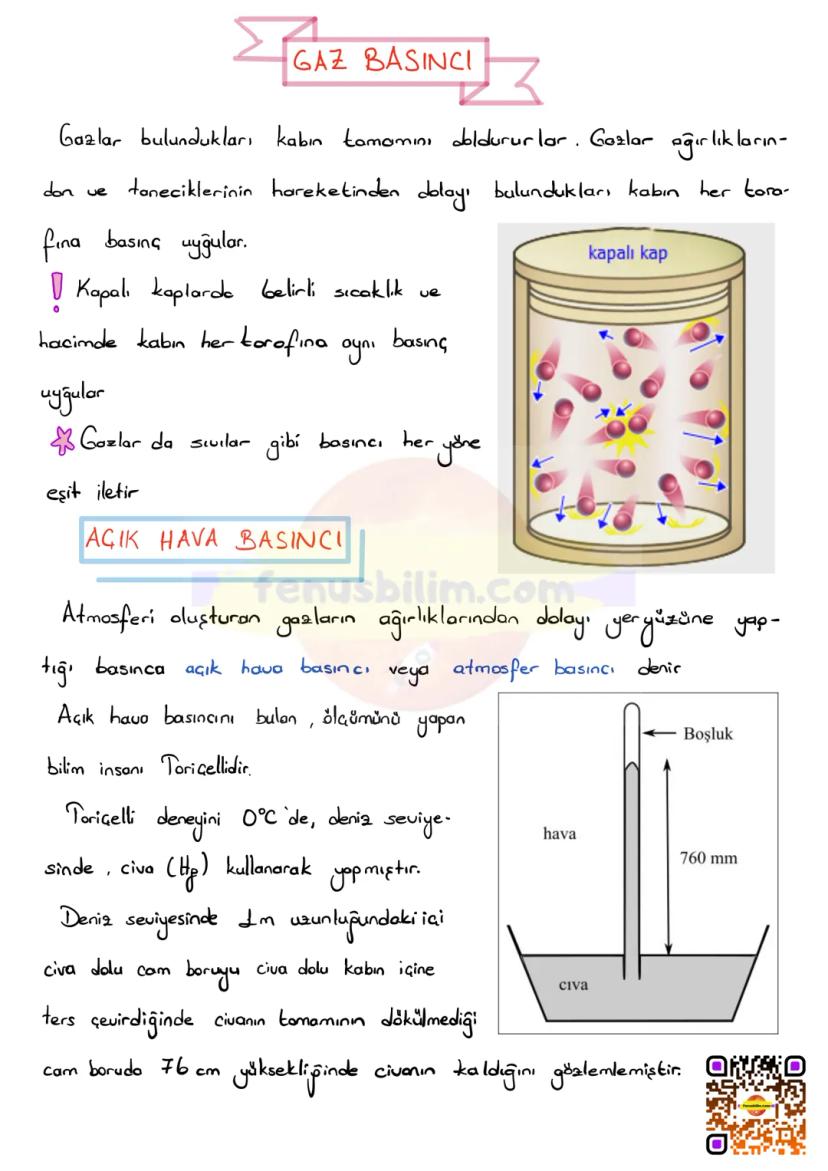 GAZ BASINCI
Gazlar bulundukları kabın tamamını doldururlar. Gazlar ağırlıkların-
dan ve taneciklerinin hareketinden dolayı bulundukları kabın her tara-
fına basınç uygular.
! Kapalı kaplarda belirli sıcaklık ve
hacimde kabın her tarafına aynı basınç
uygular
Gazlar da sıvılar gibi basıncı her yöne
eşit iletir
kapalı kap
AÇIK HAVA BASINCI
fenusbilim.com
Atmosferi oluşturan gazların ağırlıklarından dolayı yeryüzüne yap-
tığı basınca açık hava basıncı veya atmosfer basıncı denir
Açık hava basıncını bulan, ölçümünü yapan
bilim insanı Toriçellidir.
Toriçelli deneyini 0°C'de, deniz seviye-
sinde, civa (Hg) kullanarak yapmıştır.
Deniz seviyesinde 1m uzunluğundaki içi
civa dolu cam boruyu civa dolu kabın içine
ters çevirdiğinde civanın tamamının dökülmediği
cam boruda 76 cm yüksekliğinde civanın kaldığını gözlemlemiştir.
Boşluk
hava
760 mm
cıva
fenusbilim.com